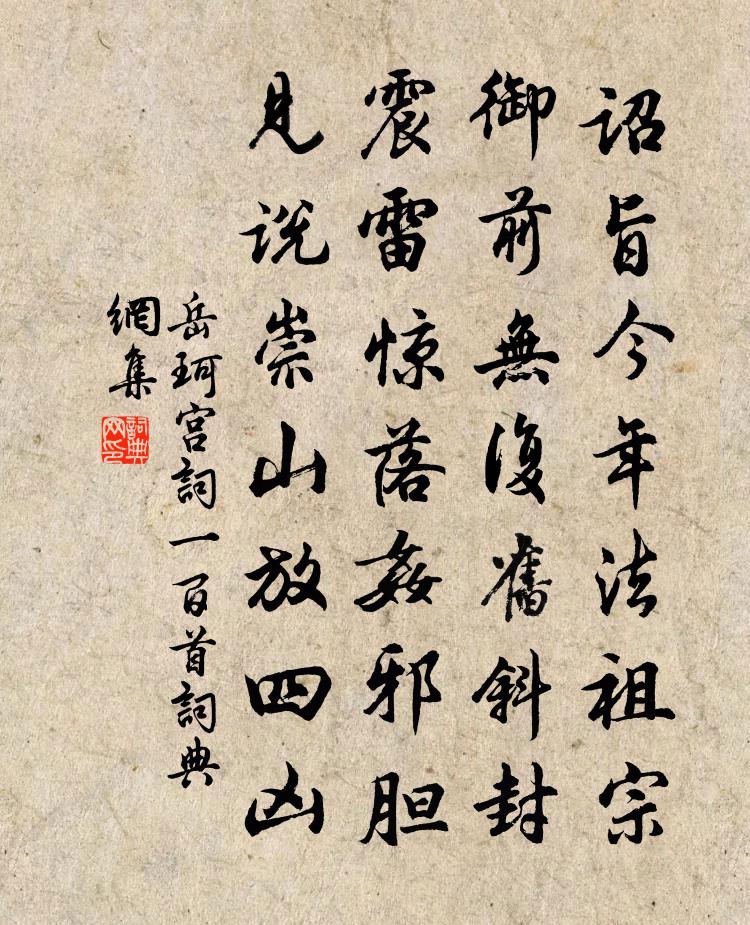 诏旨今年法祖宗
御前無復舊斜封
震雷惊落姦邪胆
見说崇山放四凶
岳珂宫詞一百首詞典
網集
詞典
网印